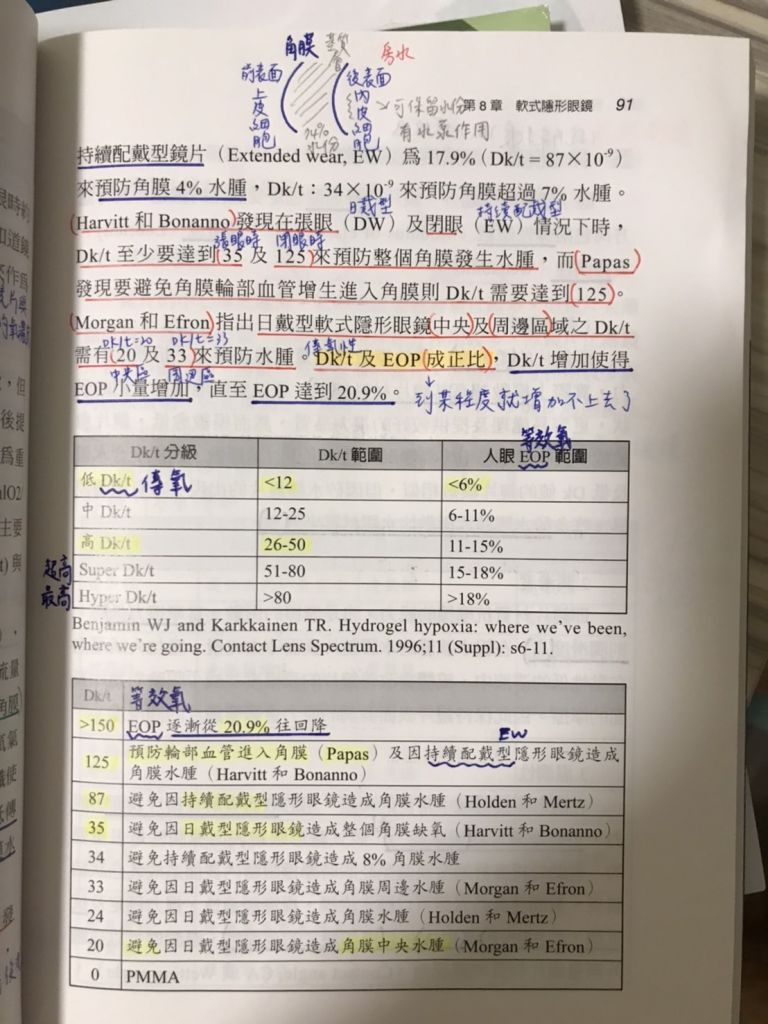 角膜 基質層 房水
前表面 上皮細胞
後表面 內皮細胞
74% 水份
可保留水份
有水泵作用
第 8 章 軟式隱形眼鏡 91
持續配戴型鏡片（Extended wear, EW）為 17.9%（Dk/t = 87×10⁻⁹）
來預防角膜 4% 水腫，Dk/t：34×10⁻⁹ 來預防角膜超過 7% 水腫。
日戴型 持續配戴型
Harvitt 和 Bonanno 發現在張眼（DW）及閉眼（EW）情況下時，
張眼時 閉眼時
Dk/t 至少要達到 35 及 125 來預防整個角膜發生水腫，而 Papas
發現要避免角膜輪部血管增生進入角膜則 Dk/t 需要達到 125。
Morgan 和 Efron 指出日戴型軟式隱形眼鏡中央及周邊區域之 Dk/t
Dk/t=20 Dk/t=33 傳氧性
需有 20 及 33 來預防水腫。Dk/t 及 EOP 成正比，Dk/t 增加使得
中央區 周邊區
EOP 小量增加，直至 EOP 達到 20.9%。
到某程度就增加不上去了
等效氧
Dk/t 分級 Dk/t 範圍 人眼 EOP 範圍
低 Dk/t 傳氧 <12 <6%
中 Dk/t 12-25 6-11%
高 Dk/t 26-50 11-15%
超高 Super Dk/t 51-80 15-18%
最高 Hyper Dk/t >80 >18%
Benjamin WJ and Karkkainen TR. Hydrogel hypoxia: where we've been,
where we're going. Contact Lens Spectrum. 1996;11 (Suppl): s6-11.
Dk/t 等效氧
>150 EOP 逐漸從 20.9% 往回降
EW
125 預防輪部血管進入角膜（Papas）及因持續配戴型隱形眼鏡造成
角膜水腫（Harvitt 和 Bonanno）
87 避免因持續配戴型隱形眼鏡造成角膜水腫（Holden 和 Mertz）
35 避免因日戴型隱形眼鏡造成整個角膜缺氧（Harvitt 和 Bonanno）
34 避免持續配戴型隱形眼鏡造成 8% 角膜水腫
33 避免因日戴型隱形眼鏡造成角膜周邊水腫（Morgan 和 Efron）
24 避免因日戴型隱形眼鏡造成角膜水腫（Holden 和 Mertz）
20 避免因日戴型隱形眼鏡造成角膜中央水腫（Morgan 和 Efron）
0 PMMA